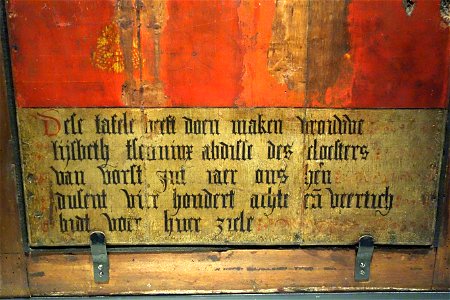 Dese tafele heeft doen maken vrouwe
lijsbeth abdisse des cloesters
van vorst int iaer ons hen
dusent vier hondert achte en̄ veertich
bidt voer huer ziele